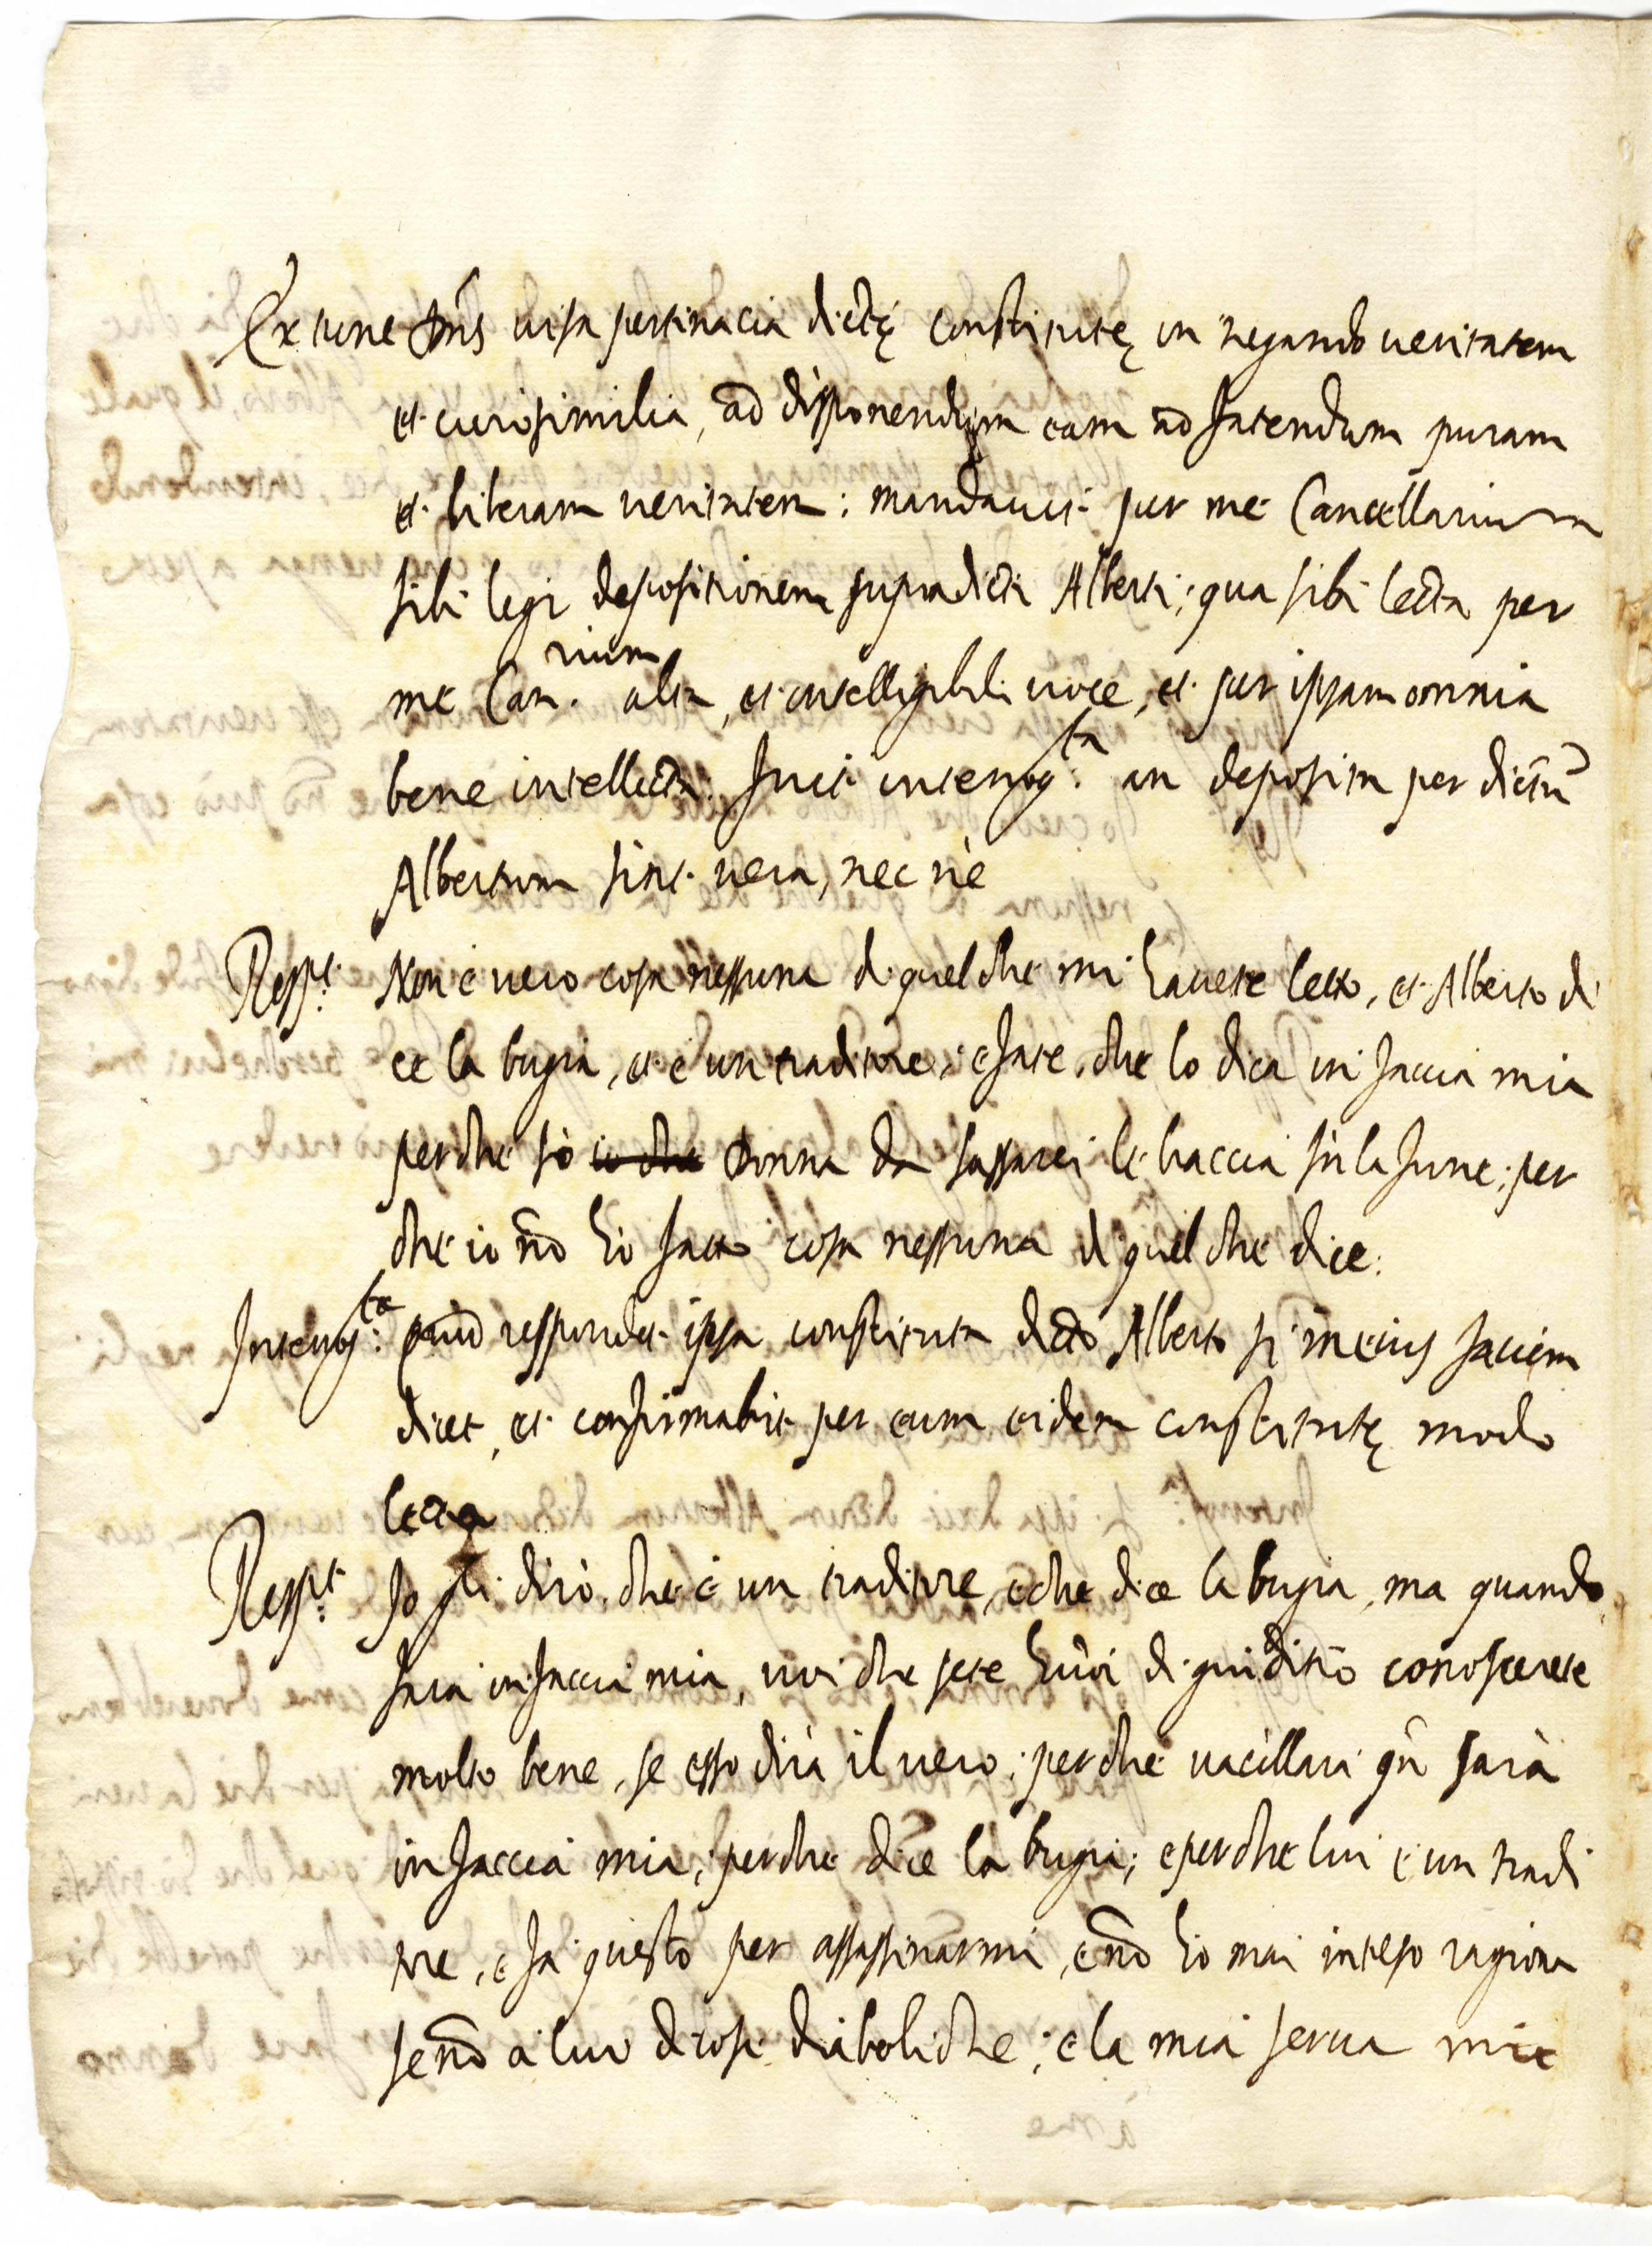 Ex tunc Dn̄s visa pertinacia dictę constitutę in negando veritatem
et verosimilia, ad disponendum eam ad fatendum puram
et liberam veritatem: mandavit per me Cancellarium
sibi legi depositionem supradicti Alberti; qua sibi lecta per
me Can.rium alta, et intelligibili voce, et per ipsam omnia
bene intellecta. Fuit interrog:ta an deposita per dictū
Albertum sint vera, nec nè
Resp:t Non è vero cosa nessuna di quel che mi havete letto, et Alberto di
ce la bugia, et è un traditore; e fate, che lo dica in faccia mia
perche sò io che donna da lassarci le braccia sù la fune; per
che io nō hò fatto cosa nessuna di quel che dice.
Interrog:ta quid respondet ipsa constituta dicto Alberto si in eius faciem
dicet, et confirmabit per eum eidem constitutę modo
lecta
Resp:t Io gli dirò, che è un traditore, e che dice la bugia, ma quando
sarà in faccia mia, voi che sete huōi di giuditio conoscerete
molto bene, se esso dirà il vero; perche vacillarà qn̄ sarà
in faccia mia; perche dice la bugia; e perche lui è un tradi
tore, e fa questo per assassinarmi, e nō hò mai inteso ragiona
se nō à lui di cose diaboliche; e la mia serva mi è